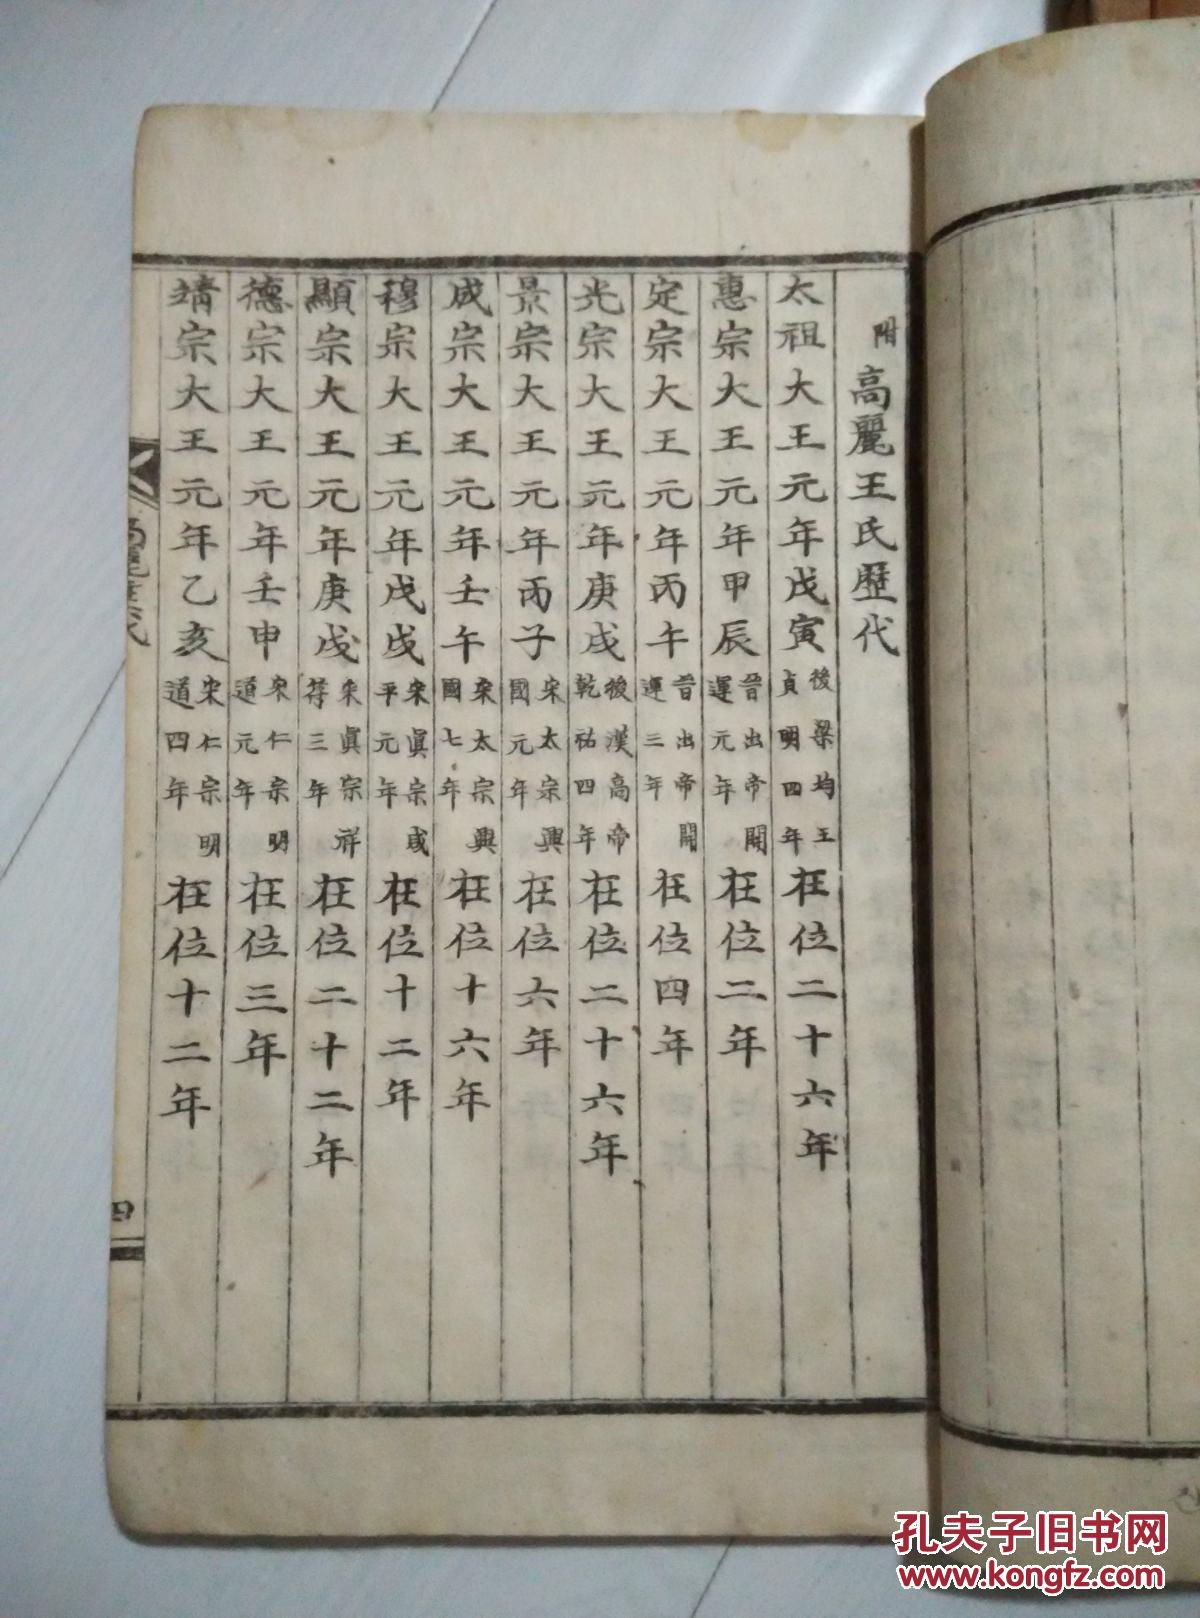 附高麗王氏歷代
太祖大王元年戊寅後梁均王貞明四年在位二十六年
惠宗大王元年甲辰晉出帝開運元年在位二年
定宗大王元年丙午晉出帝開運三年在位四年
光宗大王元年庚戌後漢高帝乾祐四年在位二十六年
景宗大王元年丙子宋太宗興國元年在位六年
成宗大王元年壬午宋太宗興國七年在位十六年
穆宗大王元年戊戌宋眞宗咸平元年在位十二年
顯宗大王元年庚戌宋眞宗祥符三年在位二十二年
德宗大王元年壬申宋仁宗明道元年在位三年
靖宗大王元年乙亥宋仁宗明道四年在位十二年
四
孔夫子旧书网
www.kongfz.com